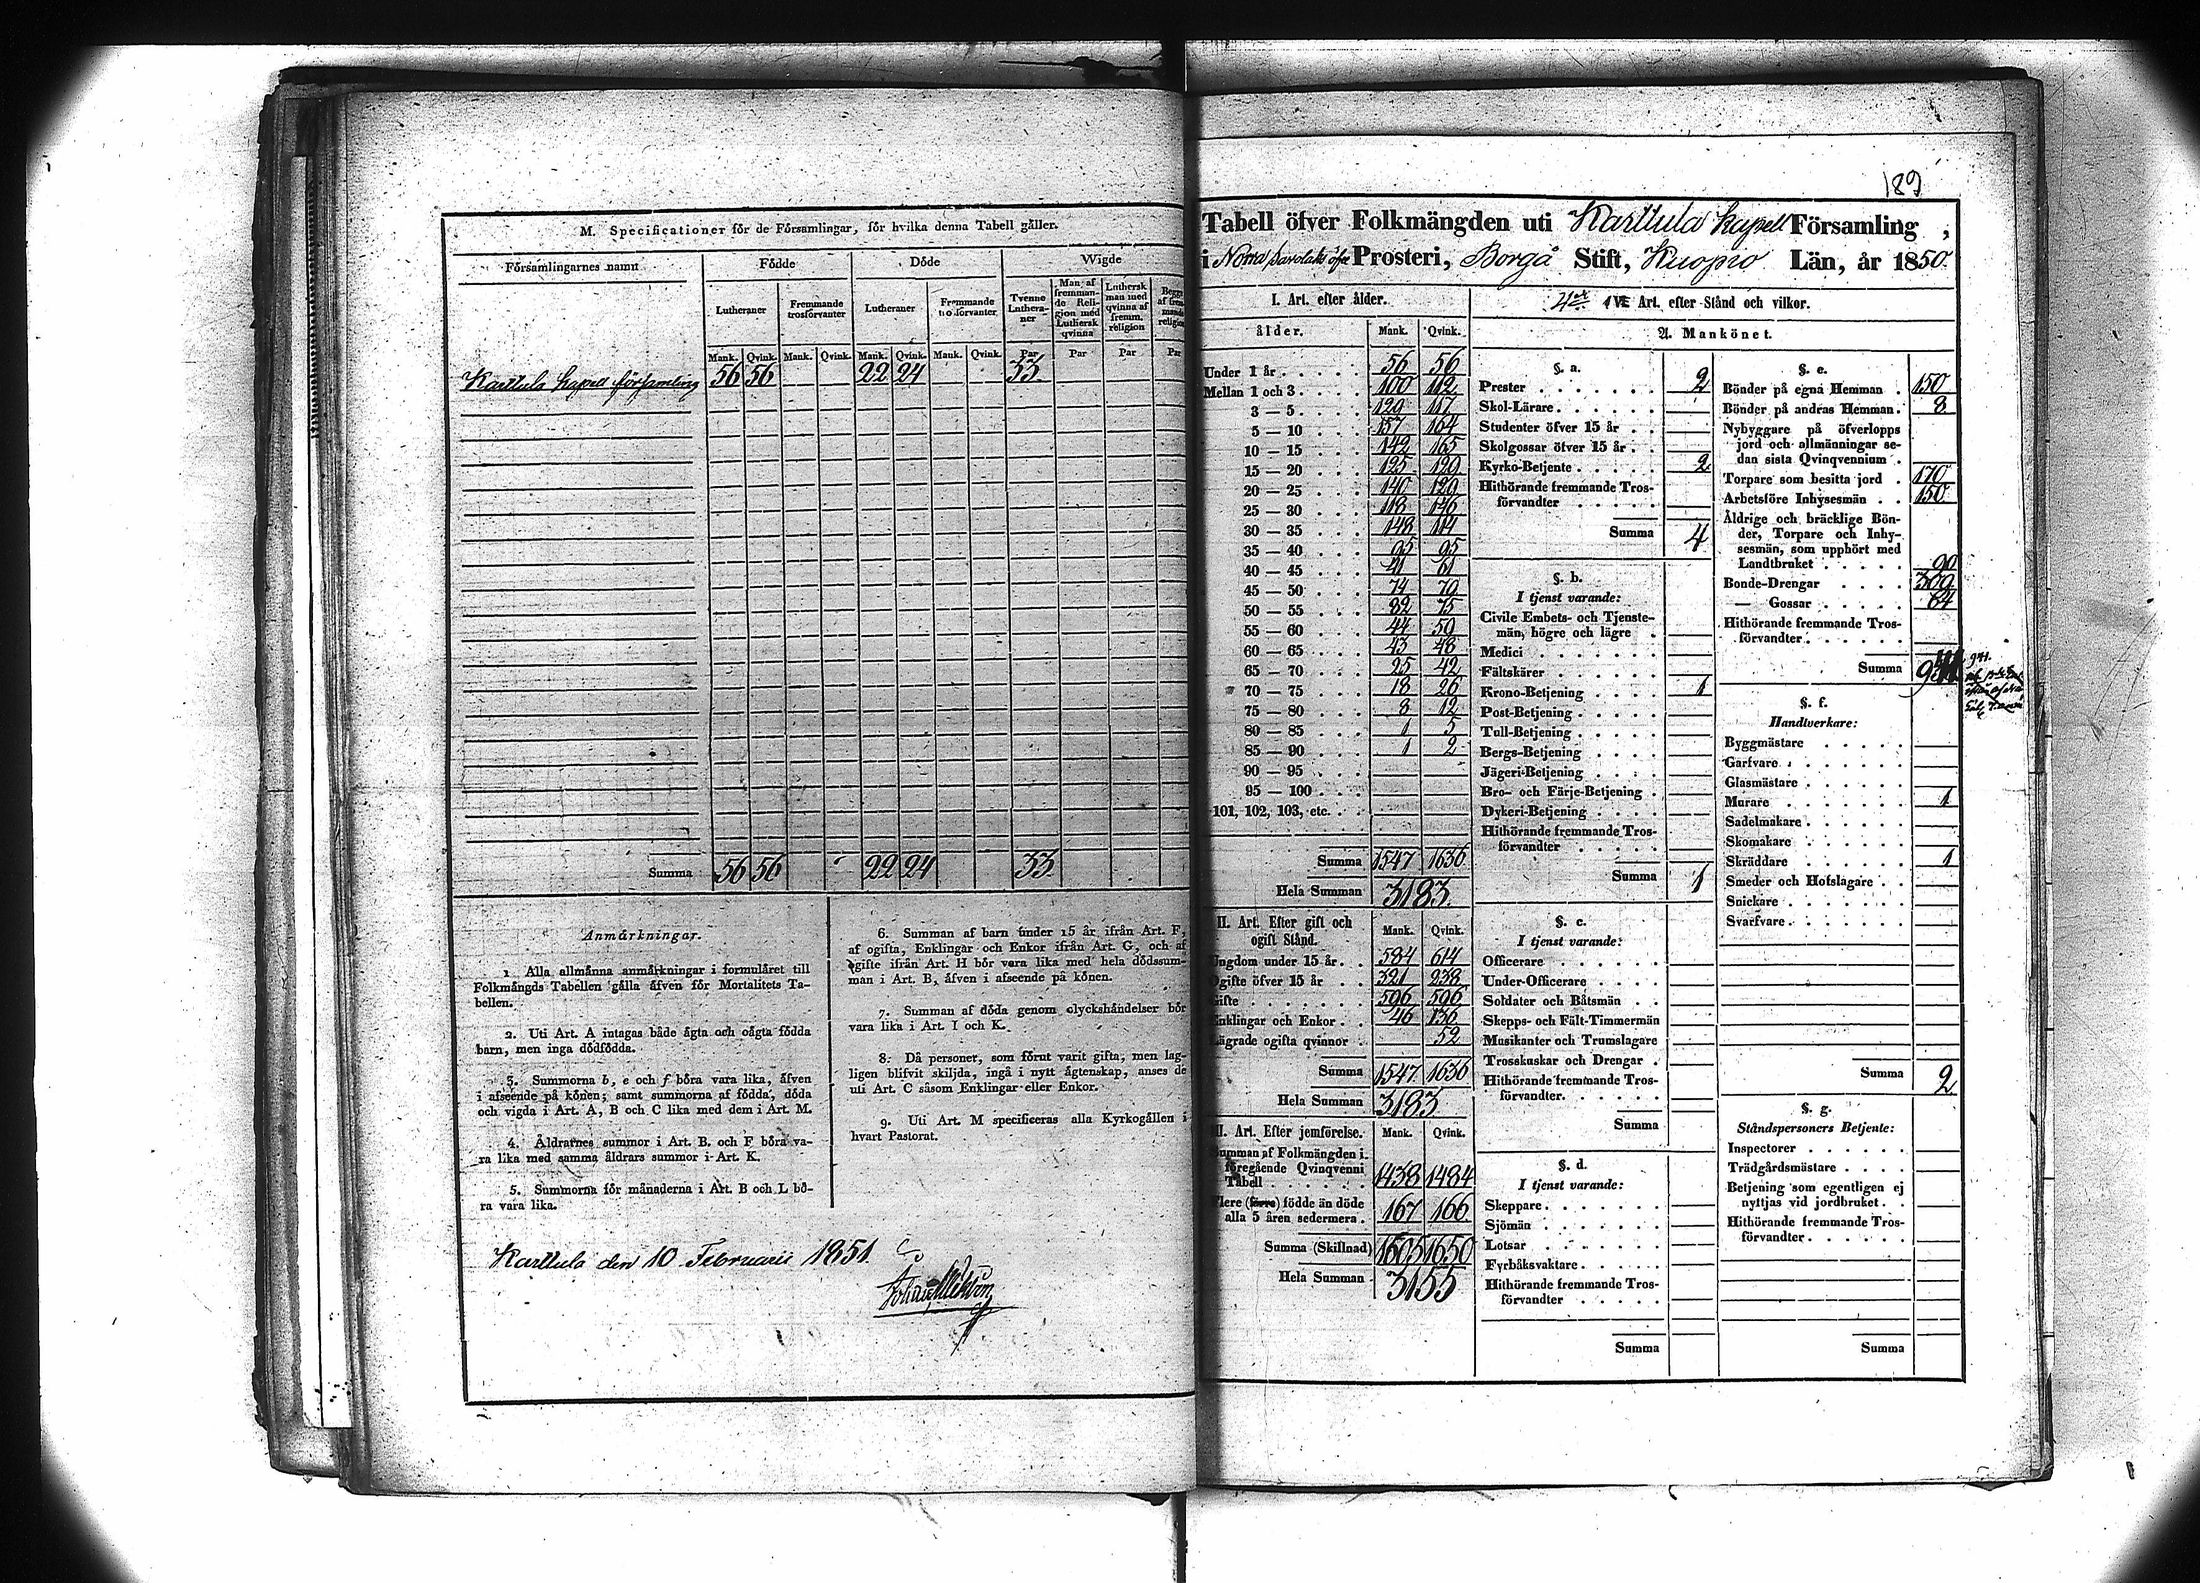 M. Specificationer för de Församlingar, för hvilka denna Tabell gäller.
Församlingarnes namn Födde Döde Wigde
Lutheraner Fremmande trosförvanter Lutheraner Fremmande trosförvanter Tvenne Lutheraner Man af fremmande Religion med Luthersk qvinna Luthersk man med qvinna af fremm. religion
Mank. Qvink. Mank. Qvink. Mank. Qvink. Mank. Qvink. Par Par Par Par
Karttula kapell församling 56 56 22 24 33
Summa 56 56 22 24 33
Anmärkningar.
1. Alla allmänna anmärkningar i formuläret till
Folkmängds Tabellen gälla äfven för Mortalitets Ta-
bellen.
2. Uti Art. A intagas både ägta och oägta födda
barn, men inga dödfödda.
3. Summorna b, e och f böra vara lika, äfven
i afseende på könen; samt summorna af födda, döda
och vigda i Art. A, B och C lika med dem i Art. M.
4. Åldrarnes summor i Art. B. och F böra va-
ra lika med samma åldrars summor i Art. K.
5. Summorna för månaderna i Art. B och L bö-
ra vara lika.
6. Summan af barn under 15 år ifrån Art. F,
af ogifta, Enklingar och Enkor ifrån Art. G, och af
gifte ifrån Art. H bör vara lika med hela dödssum-
man i Art. B, äfven i afseende på könen.
7. Summan af döda genom olyckshändelser bör
vara lika i Art. I och K.
8. Då personer, som förut varit gifta, men lag-
ligen blifvit skiljda, ingå i nytt ägtenskap, anses de
uti Art. C såsom Enklingar eller Enkor.
9. Uti Art. M specificeras alla Kyrkogällen i
hvart Pastorat.
Karttula den 10 Februarii 1851.
189
Tabell öfver Folkmängden uti Karttula kapell Församling,
i Norra Prosteri, Borgå Stift, Kuopio Län, år 1850.
I. Art. efter ålder.
ålder. Mank. Qvink.
Under 1 år 56 56
Mellan 1 och 3 100 112
3 — 5 129 117
5 — 10 157 164
10 — 15 142 165
15 — 20 125 129
20 — 25 140 129
25 — 30 118 146
30 — 35 148 114
35 — 40 95 95
40 — 45 41 61
45 — 50 74 70
50 — 55 82 75
55 — 60 44 50
60 — 65 43 48
65 — 70 25 42
70 — 75 18 26
75 — 80 8 12
80 — 85 1 5
85 — 90 1 2
90 — 95
95 — 100
101, 102, 103, etc.
Summa 1547 1636
Hela Summan 3183.
II. Art. Efter gift och
ogift Stånd. Mank. Qvink.
Ungdom under 15 år 584 614
Ogifte öfver 15 år 321 238
Gifte 596 596
Enklingar och Enkor 46 136
Lägrade ogifta qvinnor 52
Summa 1547 1636
Hela Summan 3183
III. Art. Efter jemförelse. Mank. Qvink.
Summan af Folkmängden i
föregående Qvinqvenni
Tabell 1438 1484
Flere (färre) födde än döde
alla 5 åren sedermera 167 166
Summa (Skillnad) 1605 1650
Hela Summan 3155
IVE Art. efter Stånd och vilkor.
A. Mankönet.
§. a.
Prester 2
Skol-Lärare
Studenter öfver 15 år
Skolgossar öfver 15 år
Kyrko-Betjente 2
Hithörande fremmande Tros-
förvandter
Summa 4
§. b.
I tjenst varande:
Civile Embets- och Tjenste-
män, högre och lägre
Medici
Fältskärer
Krono-Betjening 1
Post-Betjening
Tull-Betjening
Bergs-Betjening
Jägeri-Betjening
Bro- och Färje-Betjening
Dykeri-Betjening
Hithörande fremmande Tros-
förvandter
Summa 1
§. c.
I tjenst varande:
Officerare
Under-Officerare
Soldater och Båtsmän
Skepps- och Fält-Timmermän
Musikanter och Trumslagare
Trosskuskar och Drengar
Hithörande fremmande Tros-
förvandter
Summa
§. d.
I tjenst varande:
Skeppare
Sjömän
Lotsar
Fyrbåksvaktare
Hithörande fremmande Tros-
förvandter
Summa
§. e.
Bönder på egna Hemman 150
Bönder på andras Hemman 8
Nybyggare på öfverlopps
jord och allmänningar se-
dan sista Qvinqvennium
Torpare som besitta jord 170
Arbetsföre Inhysesmän 150
Åldrige och bräcklige Bön-
der, Torpare och Inhy-
sesmän, som upphört med
Landtbruket 90
Bonde-Drengar 309
— Gossar 64
Hithörande fremmande Tros-
förvandter
Summa
941.
§. f.
Handtverkare:
Byggmästare
Garfvare
Glasmästare
Murare 1
Sadelmakare
Skomakare
Skräddare 1
Smeder och Hofslagare
Snickare
Svarfvare
Summa 2
§. g.
Ståndspersoners Betjente:
Inspectorer
Trädgårdsmästare
Betjening som egentligen ej
nyttjas vid jordbruket
Hithörande fremmande Tros-
förvandter
Summa